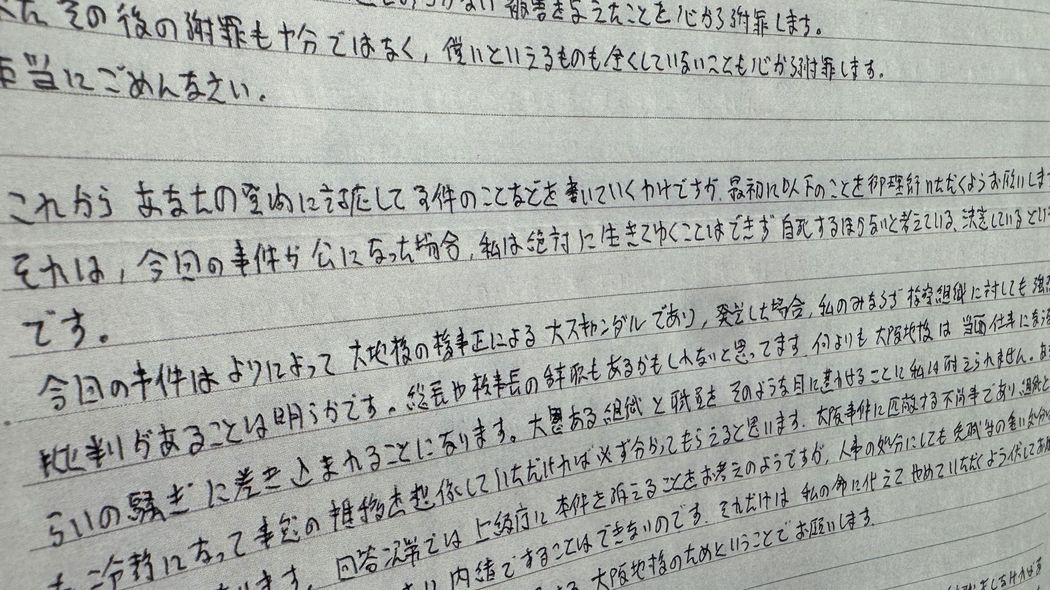 被害を与えたことを心から謝罪します。
その後の謝罪も十分ではなく、償いといえるものも全くしていないことも心から謝罪します。
本当にごめんなさい。
これから あなたの意向に対応して 本件のことなどを書いていくわけですが、最初に以下のことを御理解いただくようお願いします
それは、今回の事件が公になった場合、私は絶対に生きてゆくことはできず 自死するほかないと考えている、決意しているという
です。
今回の本件は よりによって 大地検の検事正による 大スキャンダルであり、発覚した場合、私のみならず 検察組織に対しても 強烈
批判があることは明らかです。総長や検事長の辞職もあるかもしれないと思ってます。何よりも 大阪地検は 当面仕事に
らいの騒ぎに巻き込まれることになります。大恩ある組織と職員を そのような目に遭わせることに私は耐えられません。
冷静になって事態の推移を想像していただければ必ず分かってもらえると思います。大阪事件に匹敵する不祥事であり、組織と
回答次第では 上級庁に 本件を訴えることをお考えのようですが、人事の処分にしても
内緒ですることはできないのです。それだけは 私の命に代えて やめていただくよう伏して
大阪地検のためということでお願いします。